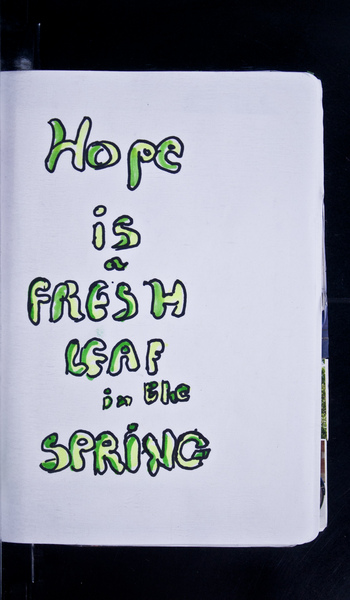 Hope
is
a
FRESH
LEAF
in the
SPRiNG